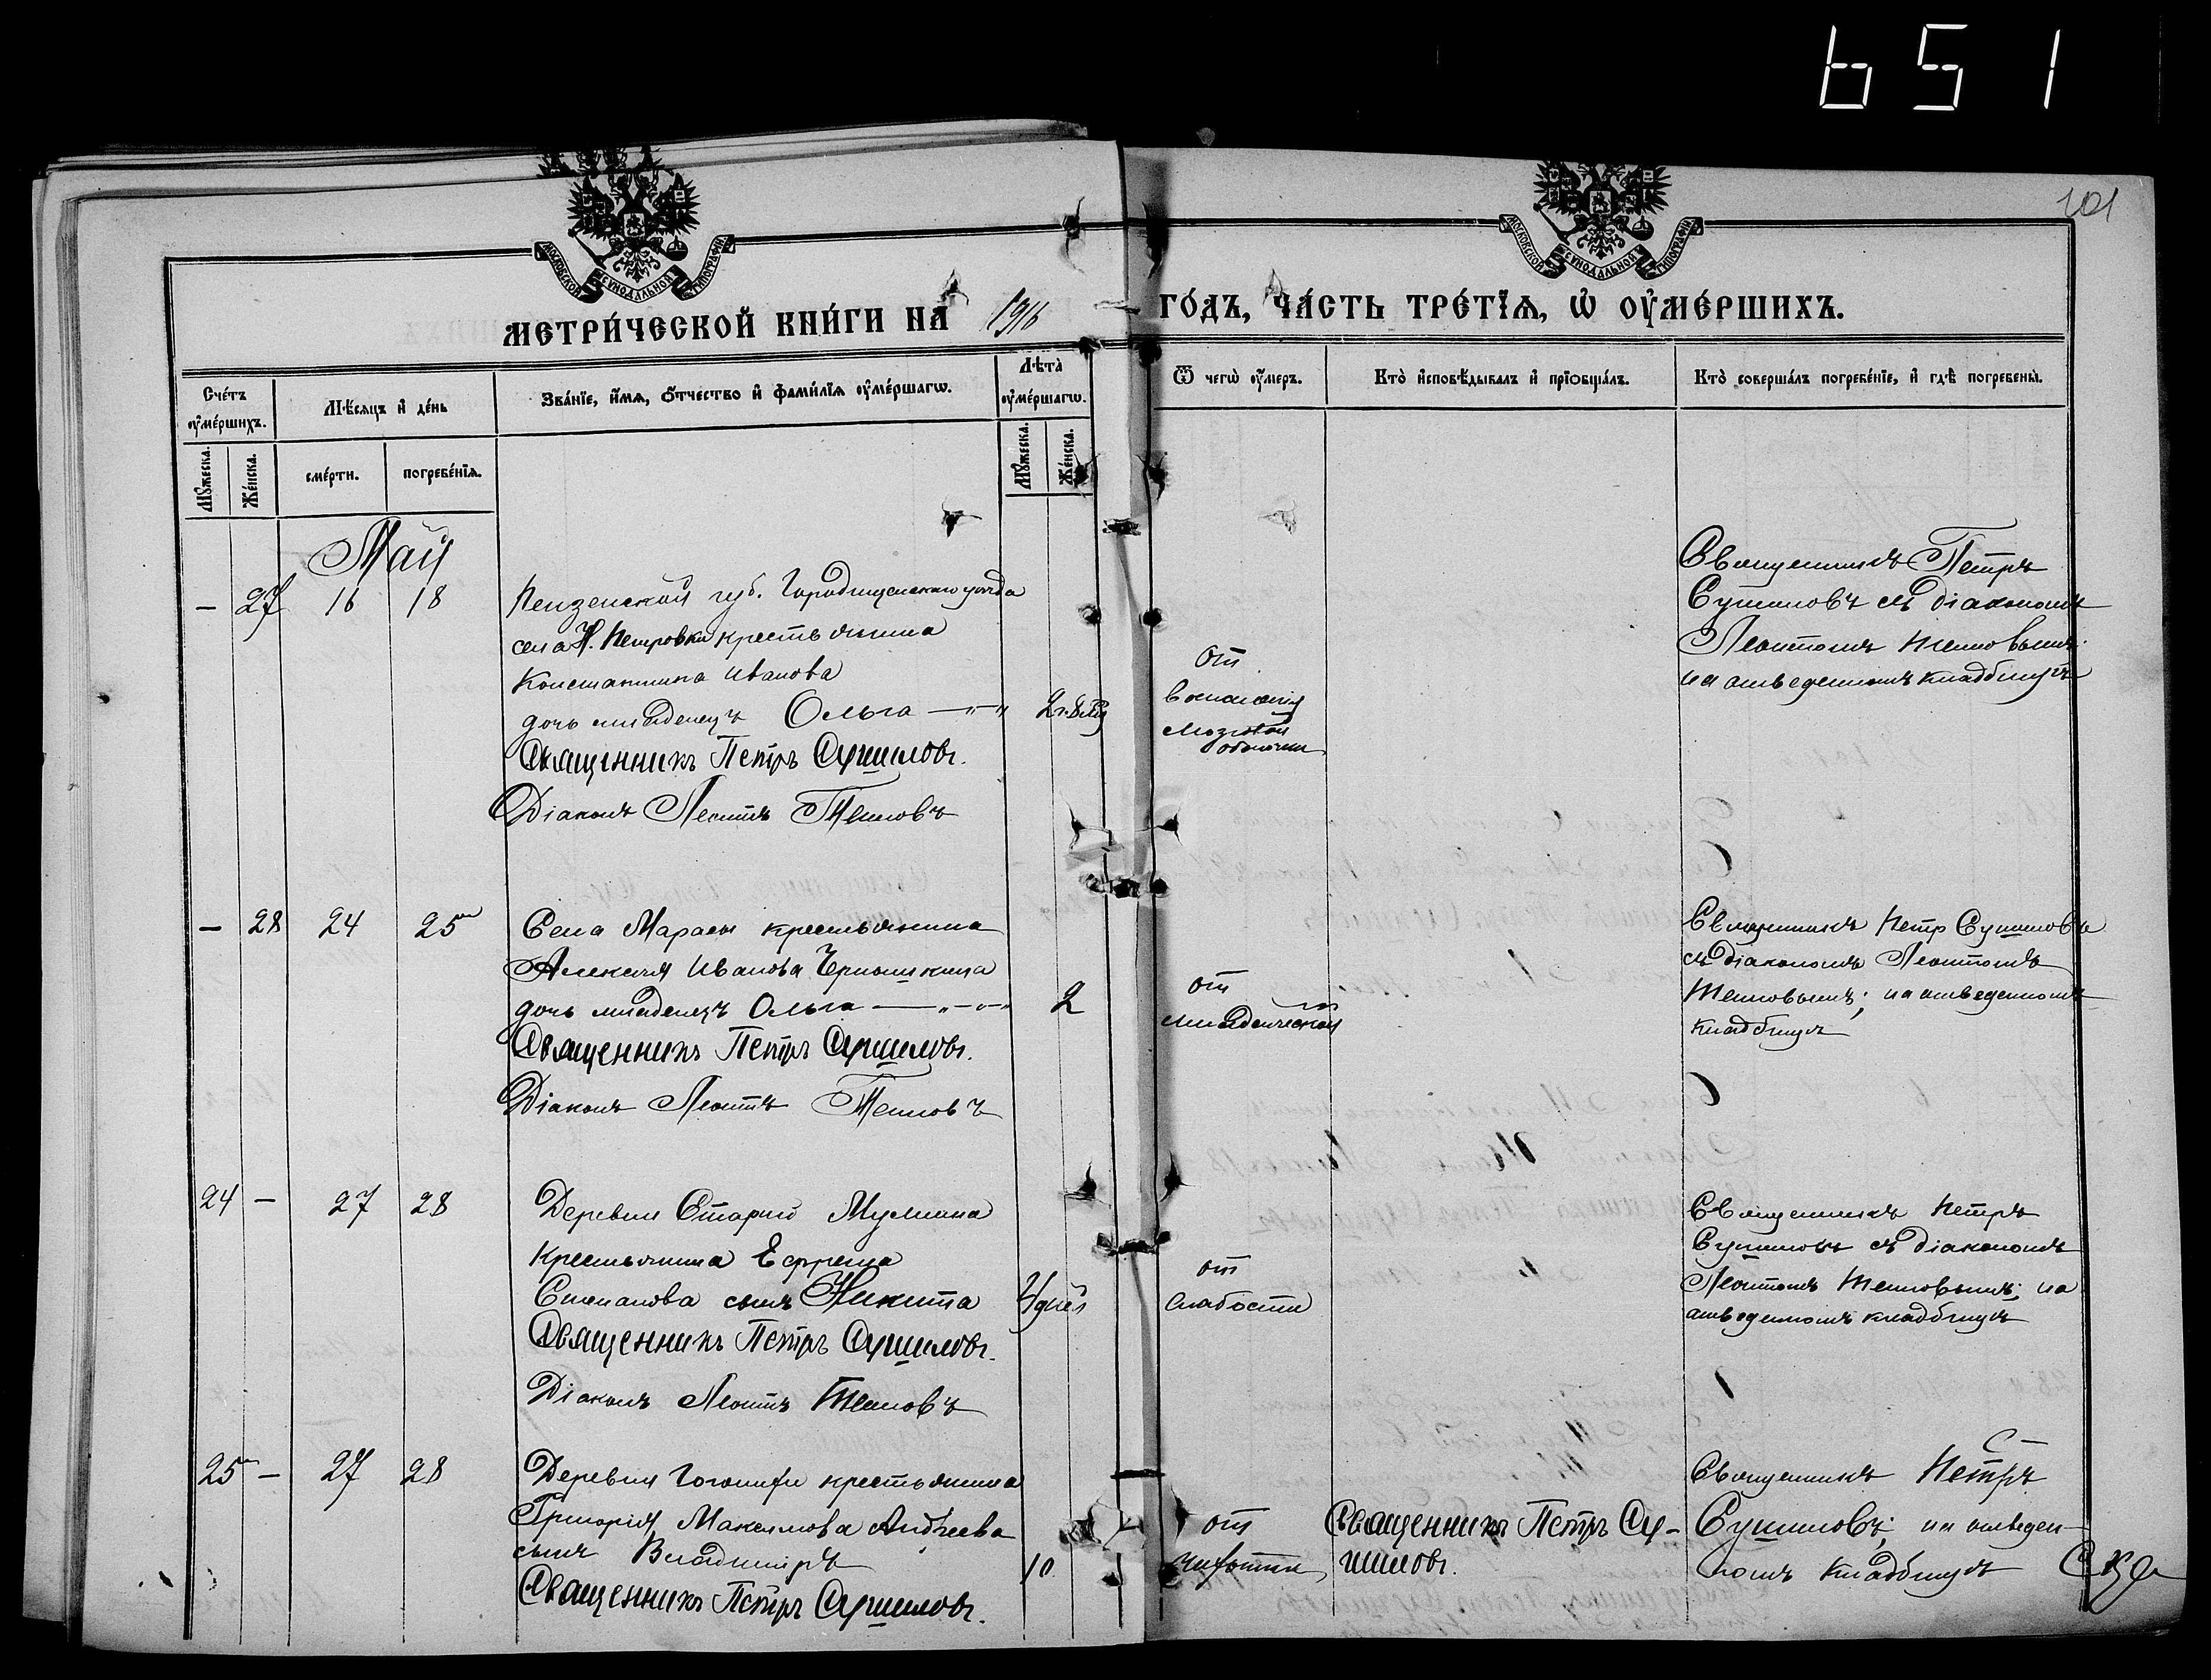 651
101
МОСКОВСКОЙ СѴНОДАЛЬНОЙ ТИПОГРАФІИ
МОСКОВСКОЙ СѴНОДАЛЬНОЙ ТИПОГРАФІИ
МЕТРИ́ЧЕСКОЙ КНИ́ГИ НА 1916 ГО́ДЪ, ЧА́СТЬ ТРЕ́ТЇѦ, Ѡ҆ ОУ҆МЕ́РШИХЪ.
Сче́тъ оу҆ме́ршихъ.
Мѣ́сяцъ и҆ де́нь
Зва́нїе, и҆́мѧ, ѻ҆́тчество и҆ фами́лїѧ оу҆ме́ршагѡ.
Лѣта̀ оу҆ме́ршагѡ.
Ѿ чегѡ̀ оу҆́меръ.
Кто̀ и҆сповѣ́дывалъ и҆ прїѡбща́лъ.
Кто̀ соверша́лъ погребе́нїе, и҆ гдѣ̀ погребены̀.
Мꙋ́жеска.
Же́нска.
сме́рти.
погребе́нїѧ.
Мꙋ́жеска.
Же́нска.
Май
— 27 16 18
Пензенской губ. Городищенскаго уѣзда
села Н. Петровки крестьянина
Константина Иванова
дочь младенецъ Ольга —"—"
Священникъ Петръ Сушиловъ.
Діаконъ Леонтъ Тепловъ
2 г. 8 м.
От
воспаленія
мозговой
оболочки
Священникъ Петръ
Сушиловъ съ діакономъ
Леонтомъ Тепловымъ;
на отведенномъ кладбищѣ
— 28 24 25
Села Марасы крестьянина
Алексія Иванова Чернышкина
дочь младенецъ Ольга —"—"—"
Священникъ Петръ Сушиловъ.
Діаконъ Леонтъ Тепловъ
2
от
младенческой
Священникъ Петр Сушиловъ
съ діакономъ Леонтомъ
Тепловымъ; на отведенномъ
кладбищѣ
24 — 27 28
Деревни Старый Мулмана
крестьянина Ефрема
Степанова сынъ Никита
Священникъ Петръ Сушиловъ.
Діаконъ Леонтъ Тепловъ
4 дней
от
слабости
Священникъ Петръ
Сушиловъ съ діакономъ
Леонтомъ Тепловымъ; на
отведенномъ кладбищѣ
25 — 27 28
Деревни крестьянина
Григорія Максимова Андреева
сынъ Владиміръ
Священникъ Петръ Сушиловъ.
10
от
чахотки
Священникъ Петръ Су-
шиловъ.
Священникъ Петръ
Сушиловъ; на отведен-
номъ кладбищѣ